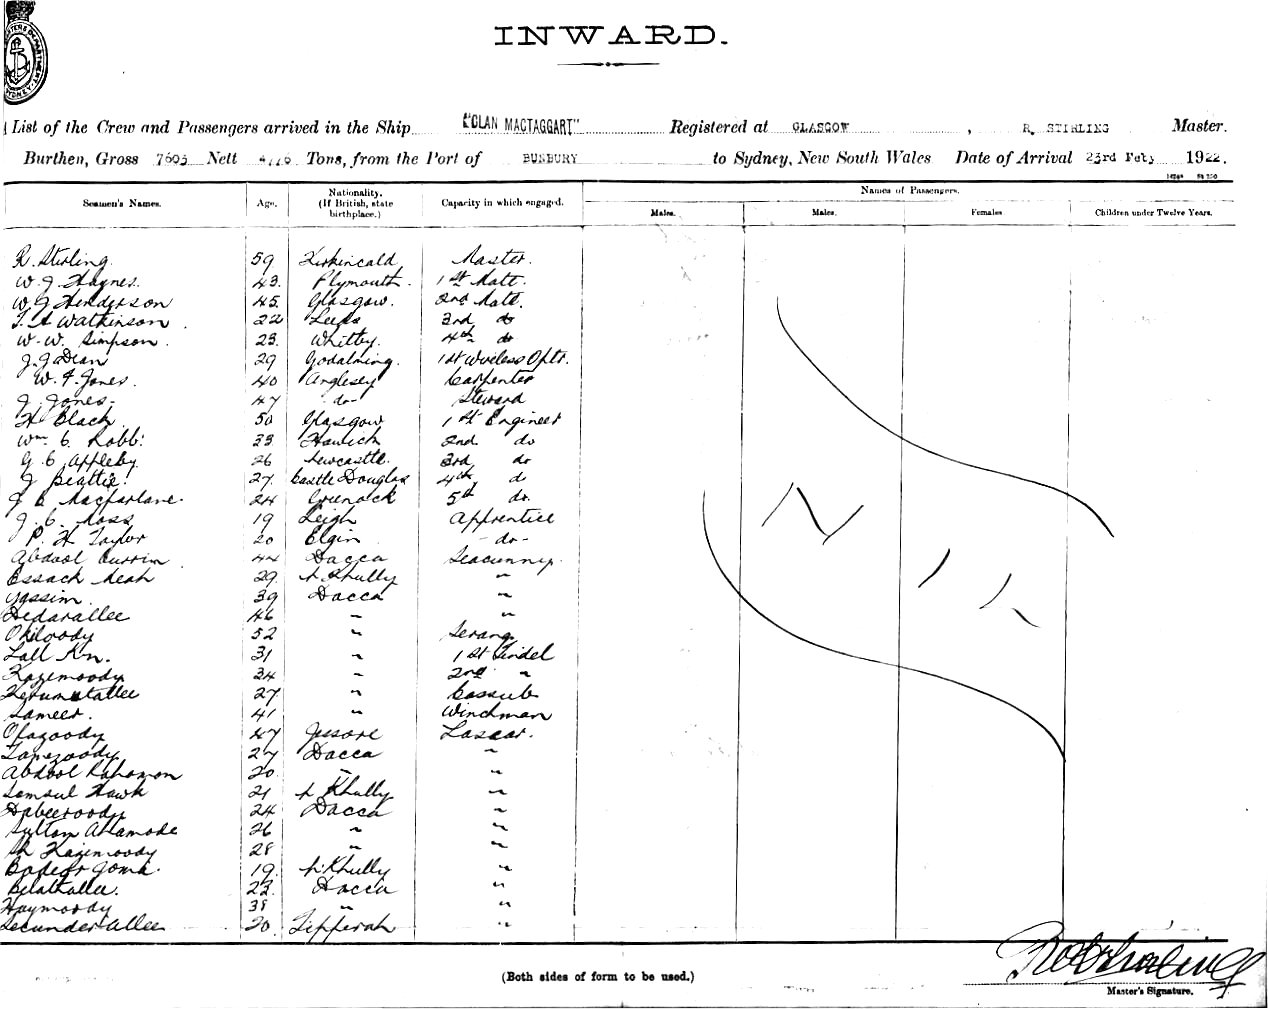 INWARD.
List of the Crew and Passengers arrived in the Ship "CLAN MACTAGGART" Registered at GLASGOW, R. STIRLING Master.
Burthen, Gross 7603 Nett Tons, from the Port of BUNBURY to Sydney, New South Wales Date of Arrival 23rd Feby 1922.
Names of Passengers.
Seamen's Names. Age. Nationality. (If British, state birthplace.) Capacity in which engaged. Males. Males. Females. Children under Twelve Years.
R. Stirling. 59 Kirkincald Master.
W. J. Haynes. 43. Plymouth. 1st Mate.
W. J. Henderson 45. Glasgow. 2nd Mate.
T. A Watkinson 22 Leeds 3rd do
W. W. Simpson. 23. Whitby. 4th do
J. J. Dean 29 Godalming. 1st Wireless Optr.
W. F. Jones. 40 Anglesey Carpenter
J. Jones. 47 -do- Steward
H Black. 50 Glasgow 1st Engineer
Wm. C. Robb. 33 Hawick 2nd do
G. C. Appleby. 26 Newcastle. 3rd do
J Beattie. 27. Castle Douglas 4th do
J C Macfarlane. 24 Greenock 5th do.
J. C. Moss 19 Leigh Apprentice
P. H Taylor 20 Elgin -do-
Abdool Currim 44 Dacca Seacunny.
Essach Meah 29. N Khully "
Yassim. 39 Dacca "
Dedarallee 46 " "
Okiloody 52 " Serang
Lall Kn. 31 " 1st Tindel
Kazemoody 34 " 2nd "
27 " Cassub
Sameer. 41 " Winchman
Ofagoody 47 Jessore Lascar.
27 Dacca "
Abdool Rahamon 20. " "
Samsul Hawk 21 N Khully "
Dabeeroody 24 Dacca "
Sulton Ahamode 26 " "
Sk Kazemoody 28 " "
19. N Khully "
Belatallee. 23. Dacca "
38 " "
Secunder Allee 20. Tipperah "
N I L
(Both sides of form to be used.)
Master's Signature.